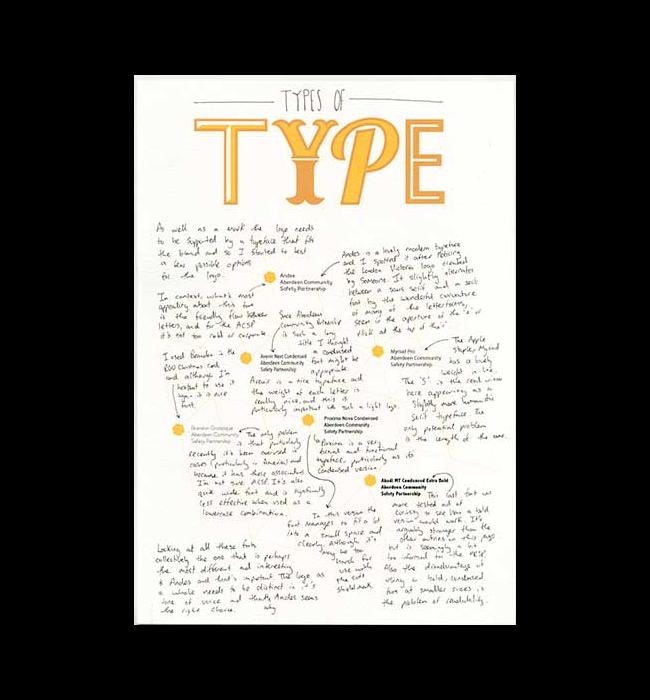 TYPES OF
TYPE
As well as a mark the logo needs
to be supported by a typeface that fits
the brand and so I started to test
a few possible options
for the logo.
Andes
Aberdeen Community
Safety Partnership
Andes is a lovely modern typeface
and I spotted it after noticing
the London Victoria logo created
by someone. It slightly alternates
between a sans serif and a serif
font by the wonderful curvature
of many of the letterforms,
seen in the aperture of the 'a' or
flick at the top of the 'i'
In context, what's most
appealing about this font
is the friendly flow between
letters, and for the ACSP
it's not too cold or corporate.
Since Aberdeen
Community
is such a long
title I thought
a condensed
font might be
appropriate.
Avenir Next Condensed
Aberdeen Community
Safety Partnership
Avenir is a nice typeface and
the weight of each letter is
really nice, and this is
particularly important in such a light logo.
Myriad Pro
Aberdeen Community
Safety Partnership
The Apple
Myriad
has a lovely
weight
The 'S' is the real
here appearing as a
slightly more humanistic
serif typeface. The
only potential problem
is the length of the name.
I used Brandon in the
RGU Christmas card
and although I'm
hesitant to use it
again it is nice
font.
Brandon Grotesque
Aberdeen Community
Safety Partnership
The only problem
is that particularly
recently it's been overused in
cases (particularly in America) and
because it has these associations
I'm not sure ACSP. It's also
quite wide font and is significantly
less effective when used as a
lowercase combination.
Proxima Nova Condensed
Aberdeen Community
Safety Partnership
Proxima is a very
and functional
typeface, particularly as its
condensed version.
In this version the
font manages to fit a lot
into a small space and
clearly, although it's
may be too
harsh for
use with
the cute
shield mark.
Abadi MT Condensed Extra Bold
Aberdeen Community
Safety Partnership
This last font was
more tested out of
curiosity to see how a bold
version would work. It's
arguably stronger than the
other entries on this page
but is seemingly a bit
too informal for the ACSP.
Also the disadvantage of
using a bold, condensed
font at smaller sizes is
the problem of readability.
Looking at all these fonts
collectively the one that is perhaps
the most different and interesting
is Andes and that's important. The logo as
a whole needs to be distinct in it's
tone of voice and that's Andes seems
the right choice. why